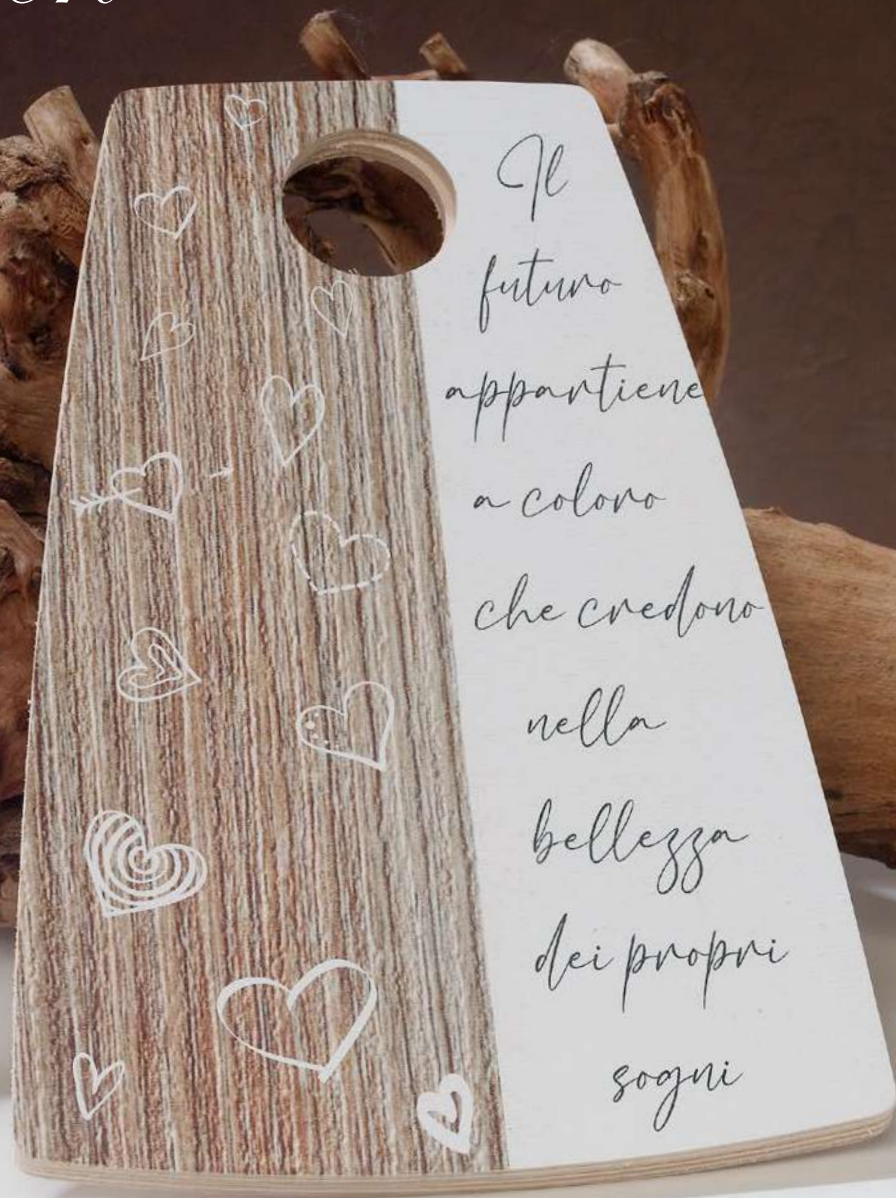 Il
futuro
appartiene
a coloro
che credono
nella
bellezza
dei propri
sogni